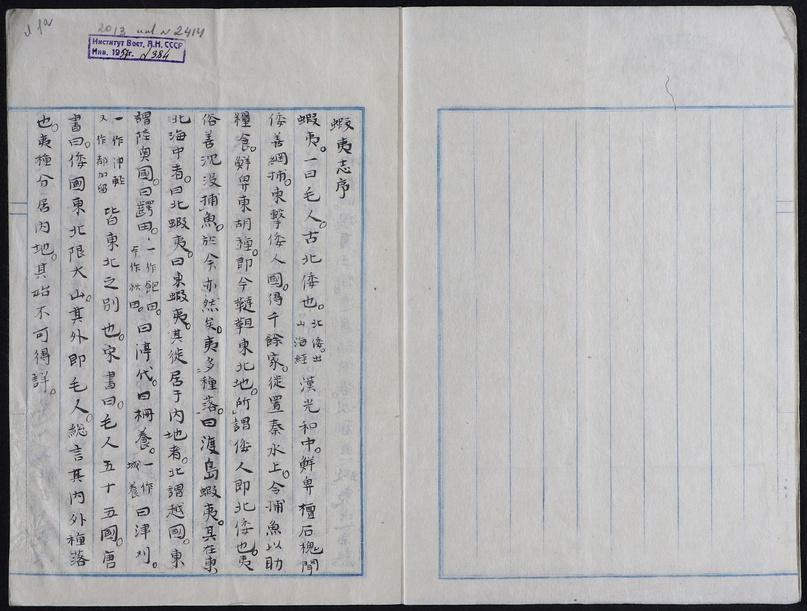 2013 инв №2414
Институт Вост. А.Н. СССР
Инв. 195 г. № 384
蝦夷志序
蝦夷。一曰毛人。古北倭也。北倭。出山海經 漢光和中。鮮卑檀石槐聞
倭善網捕。東擊倭人國。得千餘家。徙置秦水上。令捕魚以助
糧食。鮮卑東胡種。即今韃靼東北地。所謂倭人即北倭也。夷
俗善沉没捕魚。於今亦然矣。夷多種落。曰渡島蝦夷。其在東
北海中者。曰北蝦夷。曰東蝦夷。其徙居于内地者。北謂越國。東
謂陸奧國。曰齶田。一作飽田。今作秋田。曰渟代。曰柵養。一作城養 曰津刈。
一作津軽又作都加留 皆東北之別也。宋書曰。毛人五十五國。唐
書曰。倭國東北限大山。其外即毛人。総言其内外種落
也。夷種分居内地。其始不可得詳。